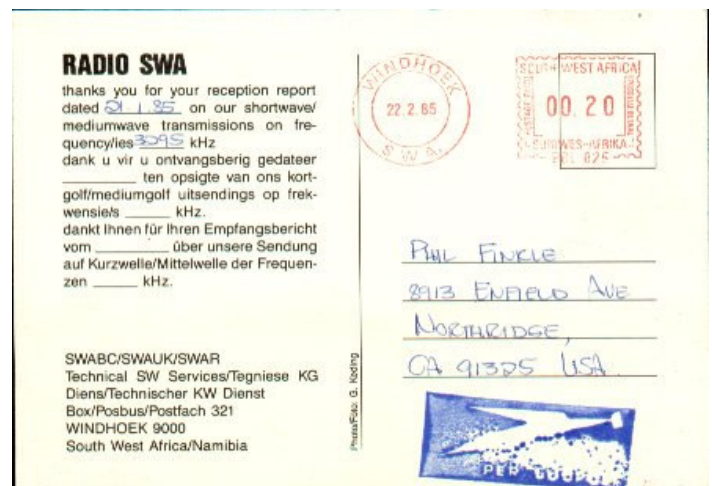 RADIO SWA
thanks you for your reception report
dated 21.1.85 on our shortwave/
mediumwave transmissions on fre-
quency/ies 3295 kHz
dank u vir u ontvangsberig gedateer
________ ten opsigte van ons kort-
golf/mediumgolf uitsendings op frek-
wensie/s ______ kHz.
dankt Ihnen für Ihren Empfangsbericht
vom ________ über unsere Sendung
auf Kurzwelle/Mittelwelle der Frequen-
zen ______ kHz.
SWABC/SWAUK/SWAR
Technical SW Services/Tegniese KG
Diens/Technischer KW Dienst
Box/Posbus/Postfach 321
WINDHOEK 9000
South West Africa/Namibia
Photo/Foto: G. Keding
WINDHOEK
22.2.85
S.W.A.
SOUTH WEST AFRICA
00.20
SUIDWES-AFRIKA
PHIL FINKLE
8913 ENFIELD AVE
NORTHRIDGE,
CA 91325 USA
PER